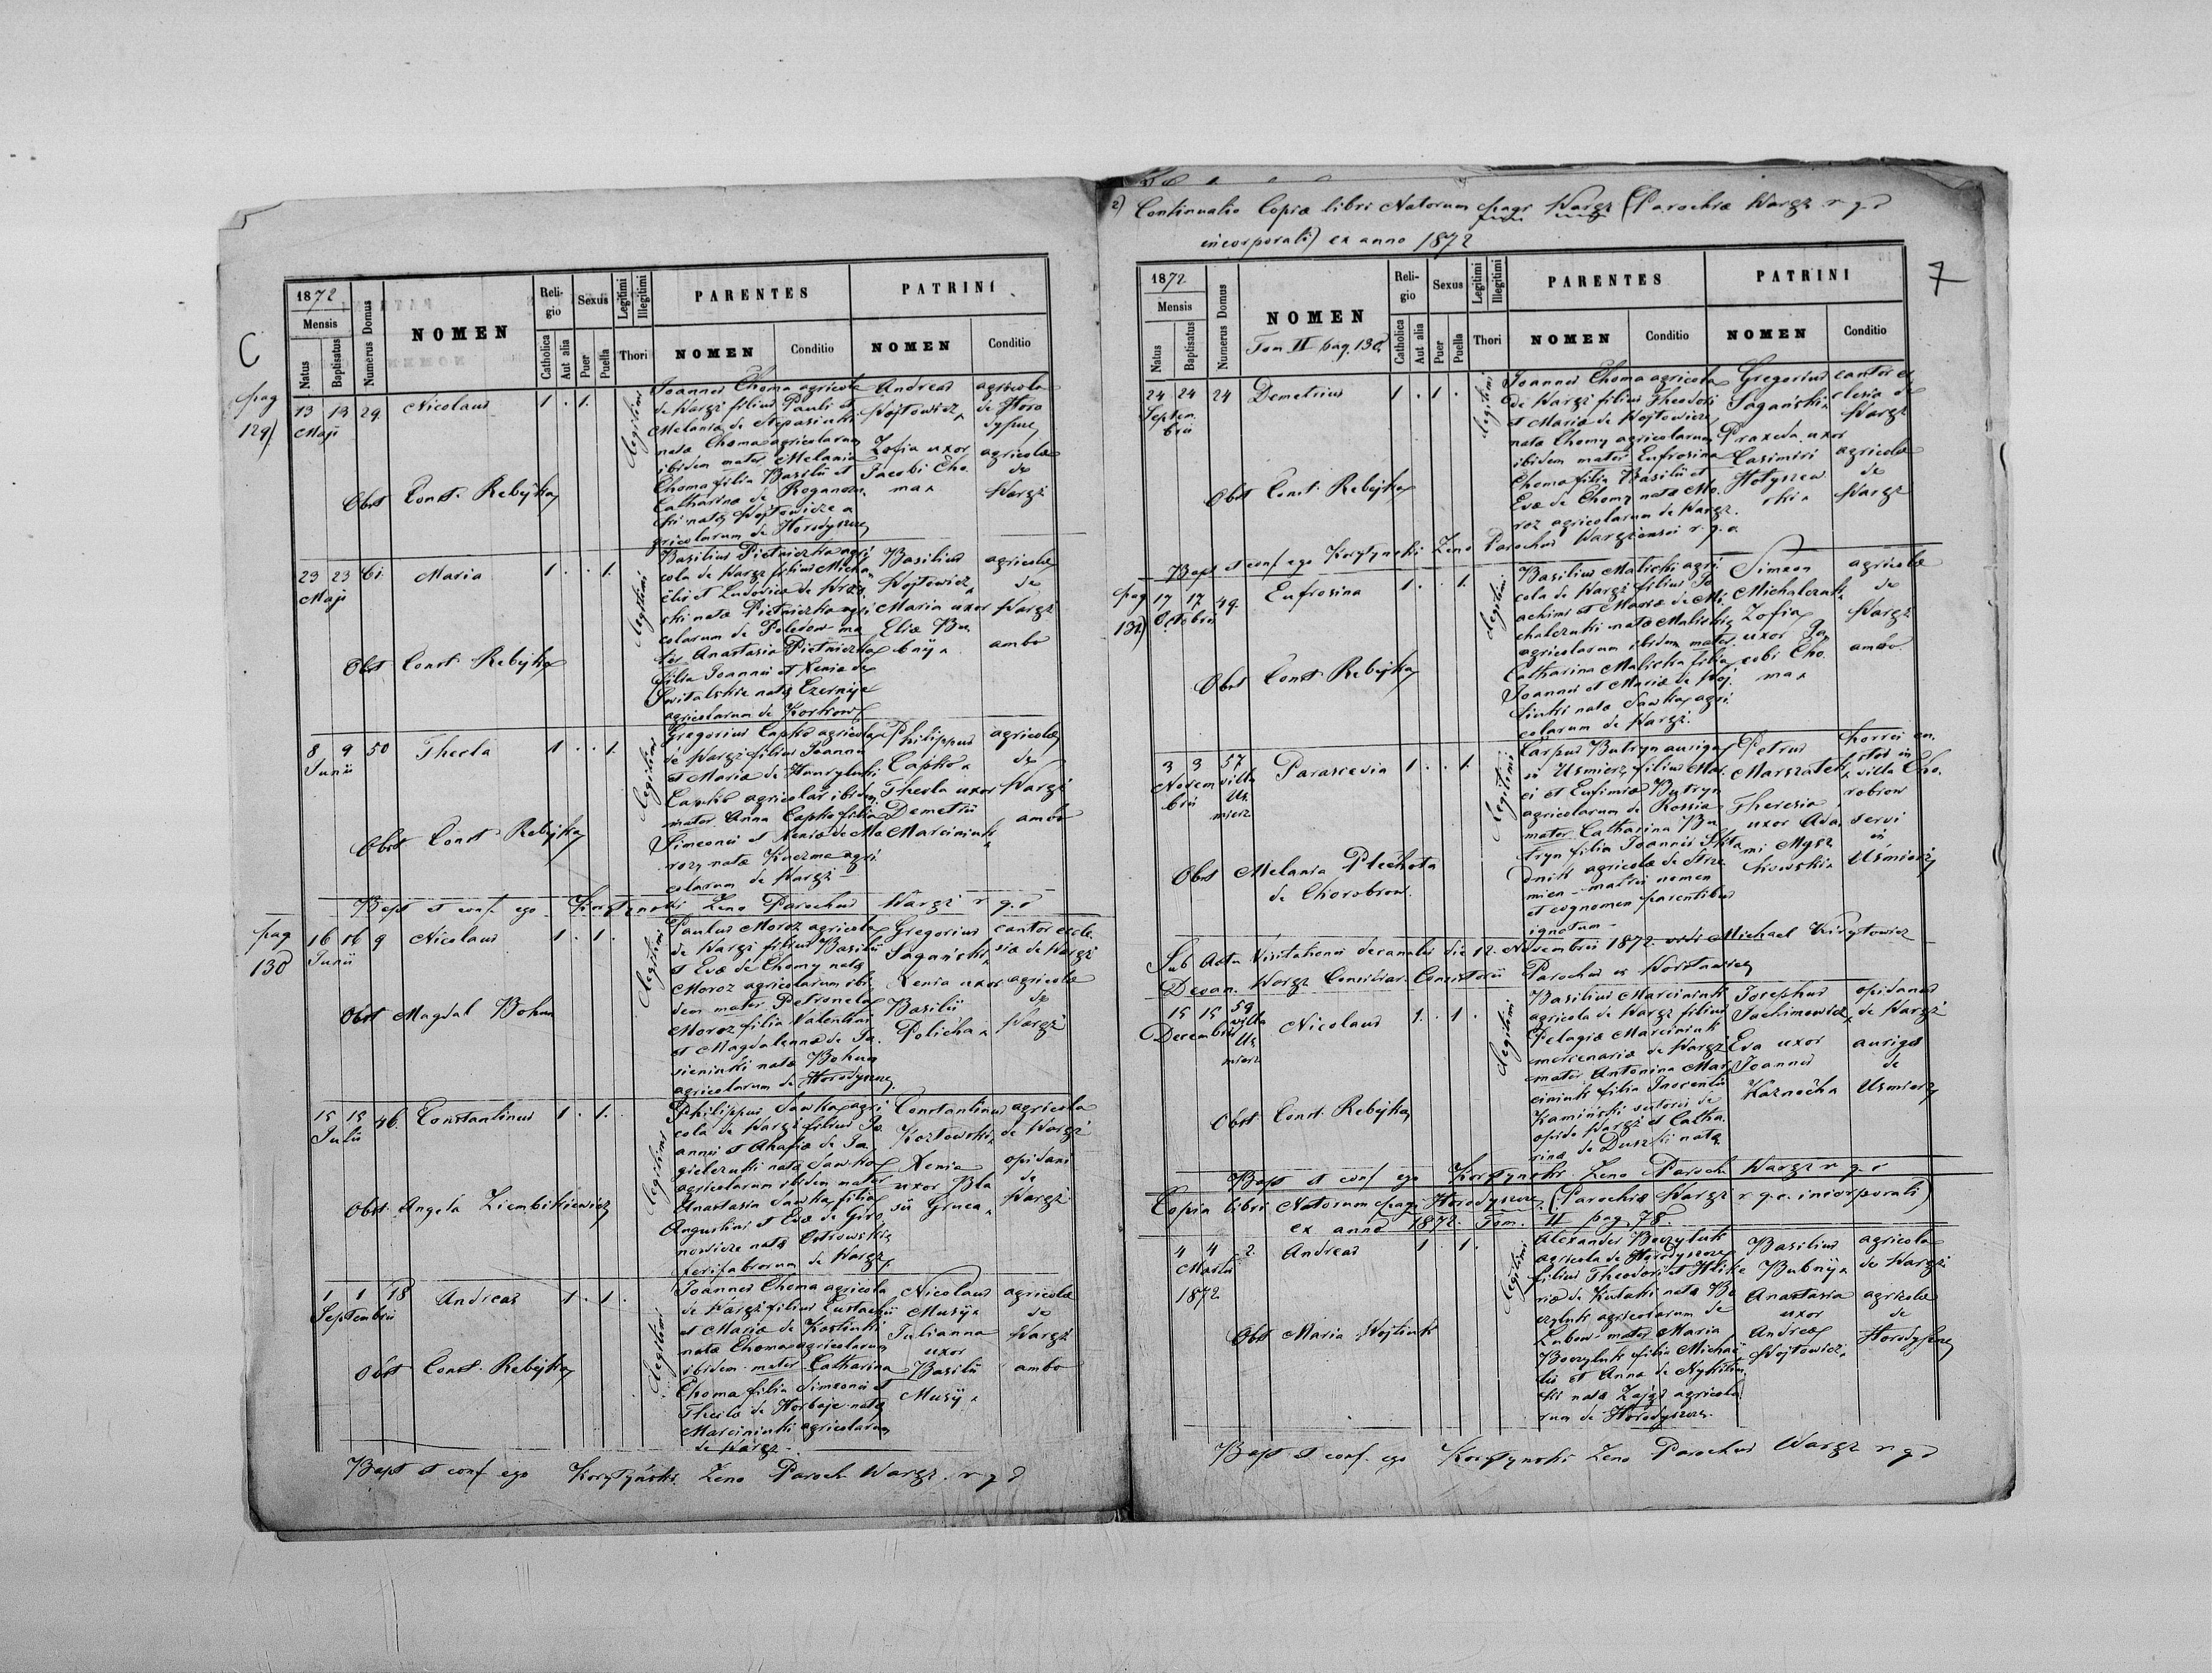 C
1872
Mensis
Natus
Baptisatus
Numerus Domus
NOMEN
Religio
Catholica
Aut alia
Sexus
Puer
Puella
Legitimi
Illegitimi
Thori
PARENTES
NOMEN
Conditio
PATRINI
NOMEN
Conditio
pag
129)
13 13 29 Nicolaus 1 . 1.
Maji
Obst Const. Rebejka
legitimi
Joannes Choma agricola
de Waręż filius Pauli et
Melaniæ de
natæ Choma agricolarum
ibidem mater Melania
Choma filia Basilii et
Catharinæ de
natæ Wojtowicze a
gricolarum de Horodyszcze
Andreas
Wojtowicz
Zofia uxor
Jacobi Cho
ma
agricola
de Horo
dyszcze
agricolæ
de
Waręż
23 23 61 Maria 1 . . 1.
Maji
Obst Const. Rebejka
legitimi
Basilius Pietniczka agri
cola de Waręż filius Micha
elis et Ludovicæ de
ski nata Pietniczka agri
colarum de mater
Anastasia Pietniczka
filia Joannis et Xeniæ de
natæ
agricolarum de
Basilius
Wojtowicz
Maria uxor
Eliæ Bu
bnij
agricolæ
de
Waręż
ambo
8 9 50 Thecla 1 . . 1.
Junii
Obst Const Rebejka
legitimi
Gregorius Capko agricola
de Waręż filius Joannis
et Mariæ de
Capko agricolar ibidem
mater Anna Capko filia
Simeonis et Xeniæ de Mo
rozy nata Kuczma agri
colarum de Waręż
Philippus
Capko
Thecla uxor
Demetrii
Marciniuk
agricolæ
de
Waręż
ambo
Bapt et conf. ego Korytynski Zeno Parochus Waręż r. g. c
pag
130
16 16 9 Nicolaus 1 . 1 .
Junii
Obst Magdal Bohun
legitimi
Paulus Moroz agricola
de Waręż filius Basilii
et Evæ de Chomy natæ
Moroz agricolarum ibi
dem mater Petronela
Moroz filia Valentini
et Magdalenæ de Ja
sieniuki natæ Bohun
agricolarum de Horodyszcze
Gregorius
Sagański
Xenia uxor
Basilii
Policha
cantor eccle
siæ de Waręż
agricolæ
de
Waręż
15 15 46. Constantinus 1 . 1.
Julii
Obst. Angela Ziembikiewicz
legitimi
Philippus Sawka agri
cola de Waręż filius Jo
annis et Ahafiæ de Ja
gielczuki nata Sawka
agricolarum ibidem mater
Anastasia Sawka filia
Augustini et Evæ de
natæ Ostrowskie
ferifabrorum de Waręż
Constantinus
Kozłowski
Xenia
uxor Bla
sii Gruca
agricola
de Waręż
opidani
de
Waręż
1 1 18 Andreas 1 . 1 .
Septembris
Obst Const. Rebejka
legitimi
Joannes Choma agricola
de Waręż filius Eustachii
et Mariæ de
natæ Choma agricolarum
ibidem mater Catharina
Choma filia Simeonis et
Theclæ de Horbaje natæ
Marciniuki agricolarum
de Waręż
Nicolaus
Musij
Julianna
uxor
Basilii
Musij
agricolæ
de
Waręż
ambo
Bapt et conf ego Korytyński Zeno Paroch Waręż. r g c
2) Continuatio Copiæ libri Natorum pagi Waręż (Parochiæ Waręż r g c
incorporati) ex anno 1872
7
1872
Mensis
Natus
Baptisatus
Numerus Domus
NOMEN
Tom II pag. 130
Religio
Catholica
Aut alia
Sexus
Puer
Puella
Legitimi
Illegitimi
Thori
PARENTES
NOMEN
Conditio
PATRINI
NOMEN
Conditio
24 24 24 Demetrius 1 . 1 .
Septem
bris
Obst Const. Rebejka
legitimi
Joannes Choma agricola
de Waręż filius Theodori
et Mariæ de Wojtowicze
nata Chomy agricolarum
ibidem mater Eufrosina
Choma filia Basilii et
Evæ de Chomy natæ Mo
roz agricolarum de Waręż.
Gregorius
Sagański
Praxeda uxor
Casimiri
Hołyszew
ski
cantor ec
clesiæ de
Waręż
agricolæ
de
Waręż
Bapt et conf ego Korytynski Zeno Parochus Waręzensis r. g. c.
pag
132)
17 17 49. Eufrosina 1 . . 1.
Octobris
Obst Const Rebejka
legitimi
Basilius Malicki agri
cola de Waręż filius Jo
achimi et Mariæ de Mi
chalczuki nata Malickie
agricolarum ibidem mater
Catharina Malicka filia
Joannis et Mariæ de
nata Sawka agri
colarum de Waręż.
Simeon
Michalczuk
Zofia
uxor Ja
cobi Cho
ma
agricolæ
de
Waręż
ambo
3 3 57 Parascevia 1 . . 1.
Novem villa
bris Us
mierz
Obst Melania Plechota
de Chorobrow.
legitimi
Carpus Butryn auriga
in Usmierz filius
et Eufimiæ Butryn
agricolarum de Rossia
mater Catharina Bu
tryn filia Joannis
agricolæ de
matris nomen
et cognomen parentibus
ignotum
Petrus
Marszałek
Theresia
uxor Ada
mi Mysz
kowski
horrei cu
stos in
villa Cho
robrow
servi
in
Uśmierz
Sub Actu Visitationis decanalis die 12. Novembris 1872 vidi Michael
Decan. Waręż Consiliar. Consistorii Parochus in
15 15 59 Nicolaus 1. . 1 .
Decembris villa
Us
mierz
Obst Const. Rebejka
legitimi
Basilius Marciniuk
agricola de Waręż filius
Pelagiæ Marciniuk
mercenariæ de Waręż
mater Antonina Mar
ciniuk filia Inocentii
Kamiński sutoris de
opido Waręż et Catha
rinæ de Duszki natæ
Josephus
Jachimowicz
Eva uxor
Joannis
Kaznocha
opidanus
de Waręż
aurigæ
de
Usmierz
Bapt et conf ego Korytynski Zeno Paroch Waręż r g c
Copia libri Natorum pag. Horodyszcze (Parochiæ Waręż r. g. c. incorporati)
ex anno 1872. Tom. II pag. 78.
4 4 2 Andreas 1 . 1 .
Martii
1872
Obst Maria Wojtiuk
legitimi
Alexander
agricola de Horodyszcze
filius Theodori et
agricolarum de
mater Maria
filia Michae
lis et Annæ de
nata Zając agricola
rum de Horodyszcze.
Basilius
Bubnij
Anastasia
uxor
Andreæ
Wojtowicz
agricola
de Waręż
agricolæ
de
Horodyszcze
Bapt et conf. ego Korytynski Zeno Parochus Waręż r g c